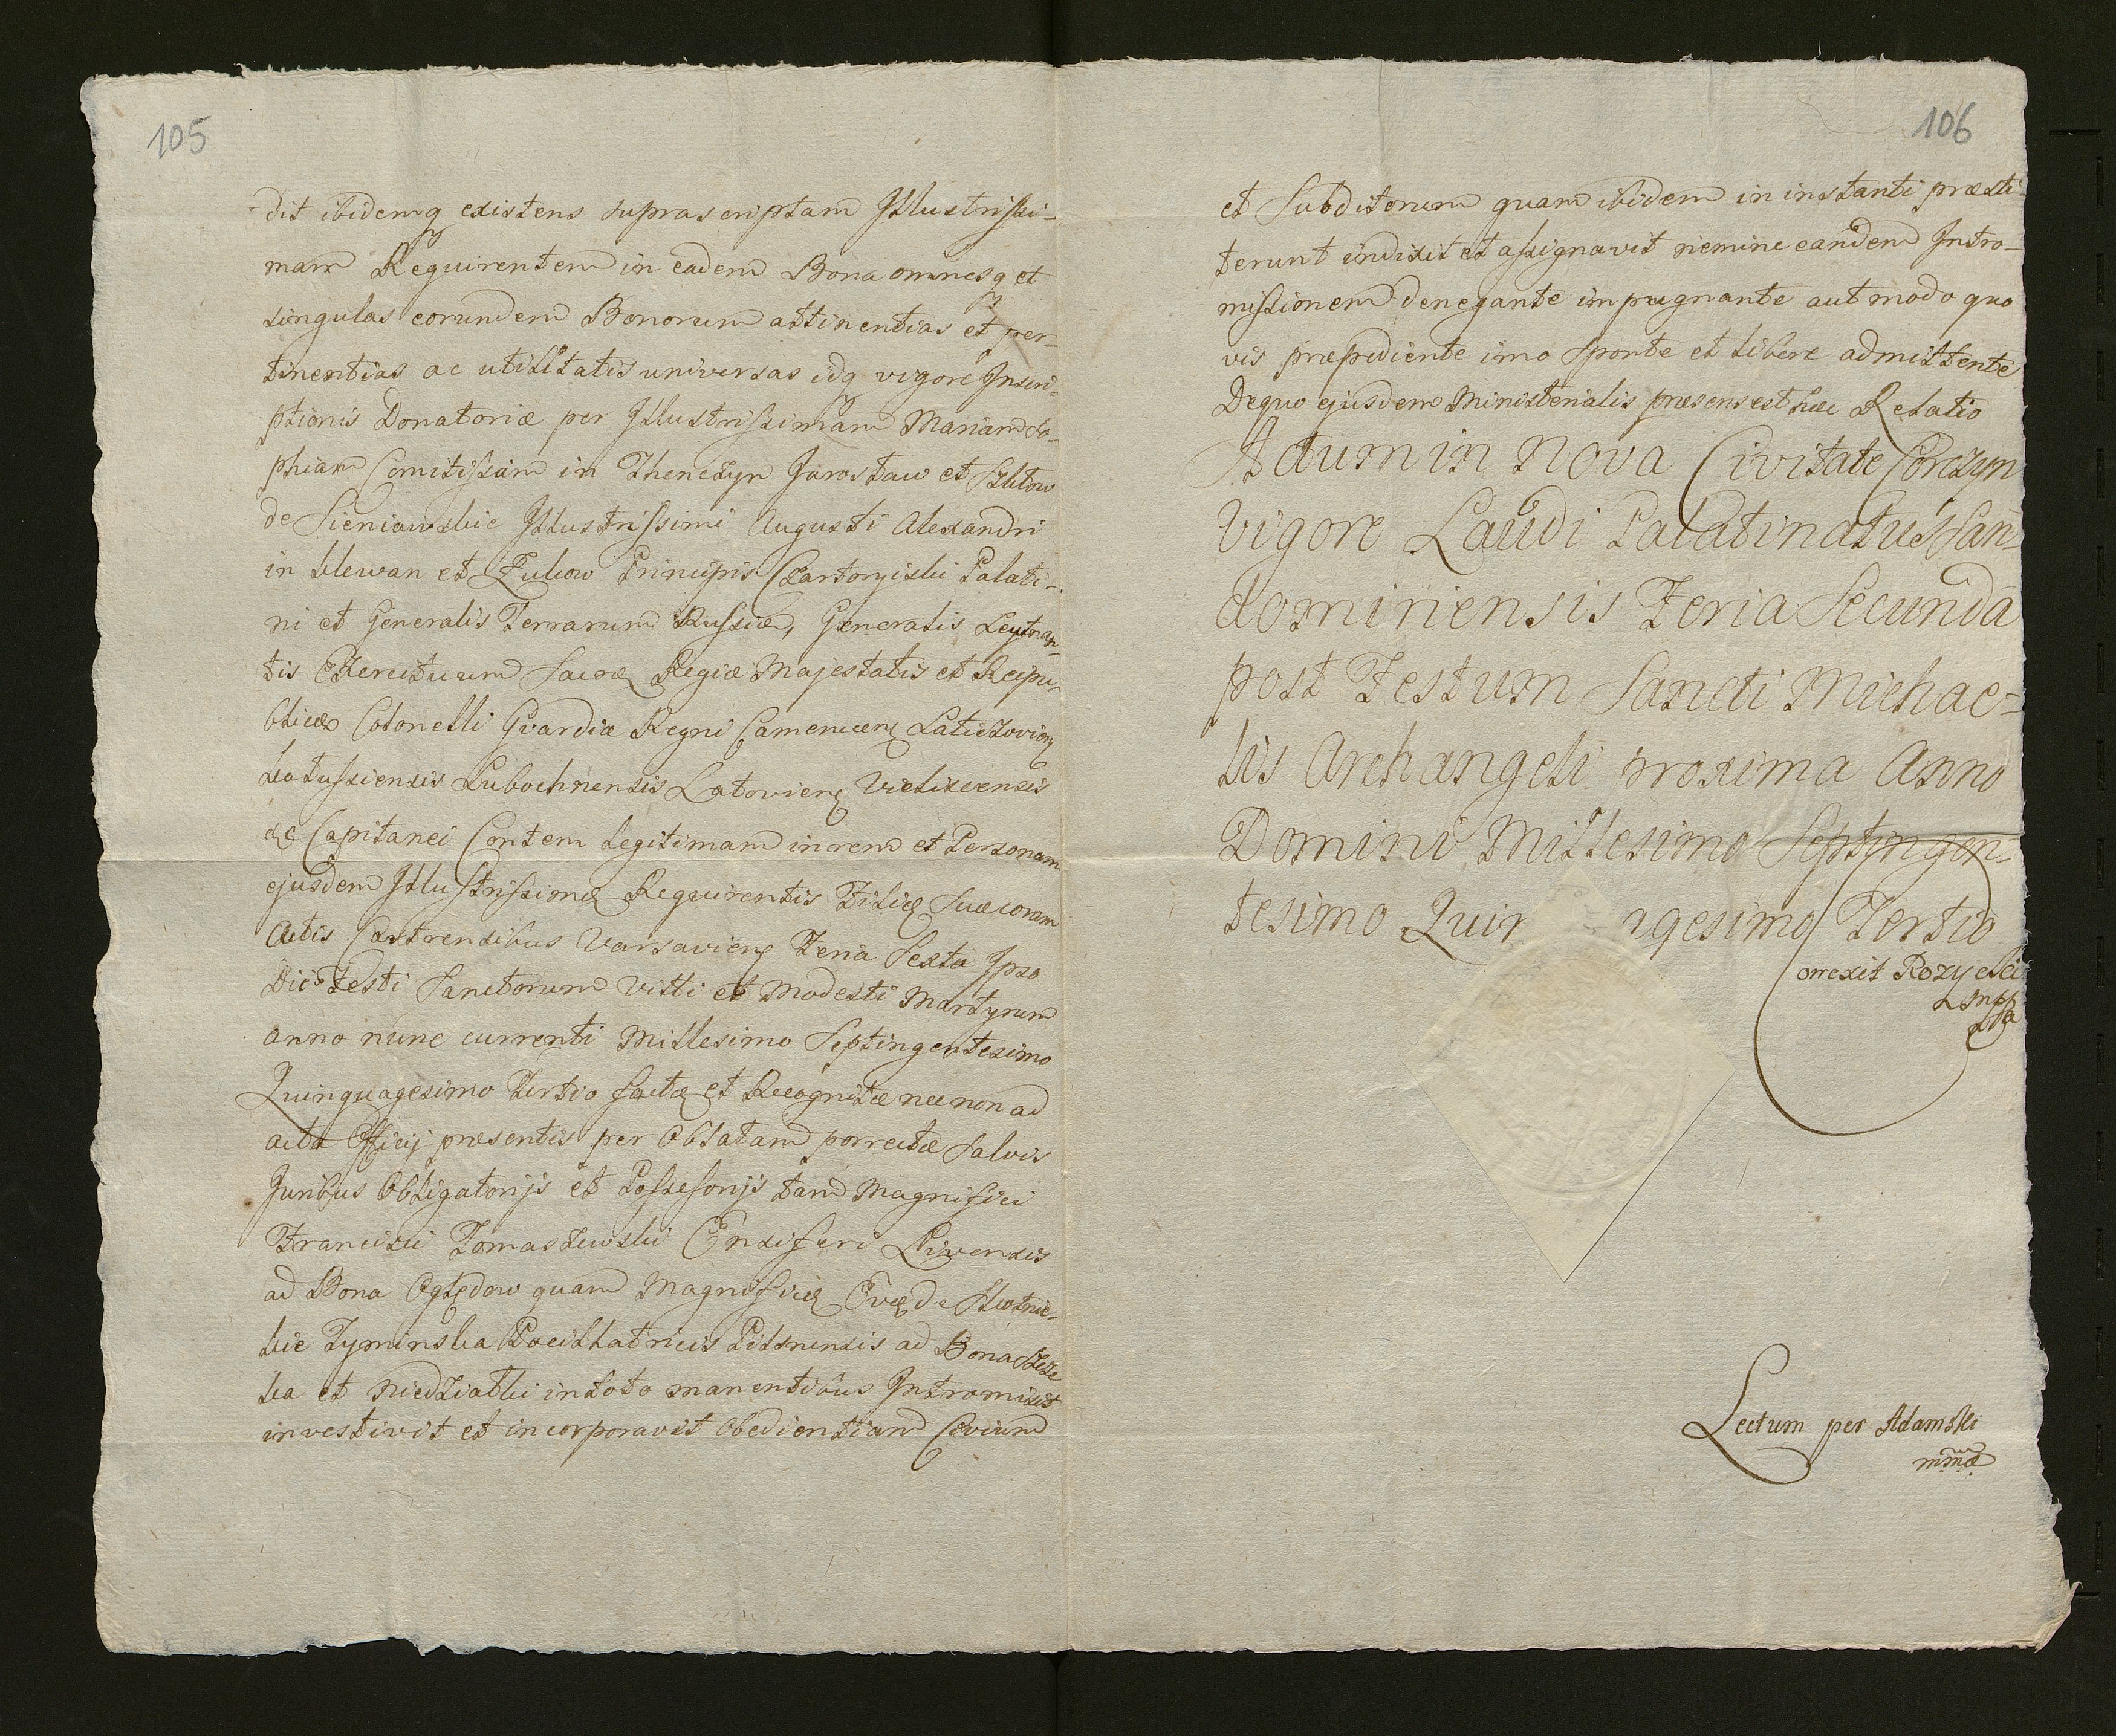 105
dit ibidemq existens suprascriptam Illustrissi-
mam Requirentem in eadem Bona omnesq et
singulas eorundem Bonorum attinentias et per-
tinentias ac utilitatis universas idq vigore Inscri-
ptionis Donatoriæ per Illustrissimam Mariam So-
phiam Comitissam in Thenczyn Jarosław et
de Sieniawskie Illustrissimi Augusti Alexandri
in Klewan et Zukow Principis Czartoryiski Palati-
ni et Generalis Terrarum Russiæ, Generalis Leytnan-
tis Exercituum Sacræ Regiæ Majestatis et Reipu-
blicæ Colonelli Gvardiæ Regni Camenecen Laticzovien
Kałussiensis Lubochnensis Latovien Vielixensis
&c Capitanei Contem legitimam in rem et Personam
ejusdem Illustrissimæ Requirentis Filiæ Suæ coram
Actis Castrensibus Varsavien Feria Sexta Ipso
Die Festi Sanctorum Vitti et Modesti Martyrum
Anno nunc currenti Millesimo Septingentesimo
Quinquagesimo Tertio factæ et Recognitæ nec non ad
acta Officij præsentis per Oblatam porrectæ Salvis
Juribus Obligatorijs et Possesorijs tam Magnifici
Franciszi Tomaszewski Ensiferi Livensis
ad Bona Oględow quam Magnificæ Evæ de Słotnic-
kie Tyminska Pocillatricis Pilsnensis ad Bona
ka et Niedziałki in toto manentibus Intromisit
investivit et incorporavit Obedientiam Civium
106
et Subditorum quam ibidem in instanti præsti
terunt indixit et assignavit nemine eandem Intro-
missionem denegante impugnante aut modo quo
vis præpediente imo sponte et libere admittente
De quo ejusdem Ministerialis præsens est hæc Relatio
Actum in Nova Civitate Corczyn
Vigore Laudi Palatinatus San-
domiriensis Feria Secunda
post Festum Sancti Michae-
lis Archangeli proxima Anno
Domini Millesimo Septingen-
tesimo Quin agesimo Tertio
Correxit Rozycki
Lectum per Adamski
mmæ